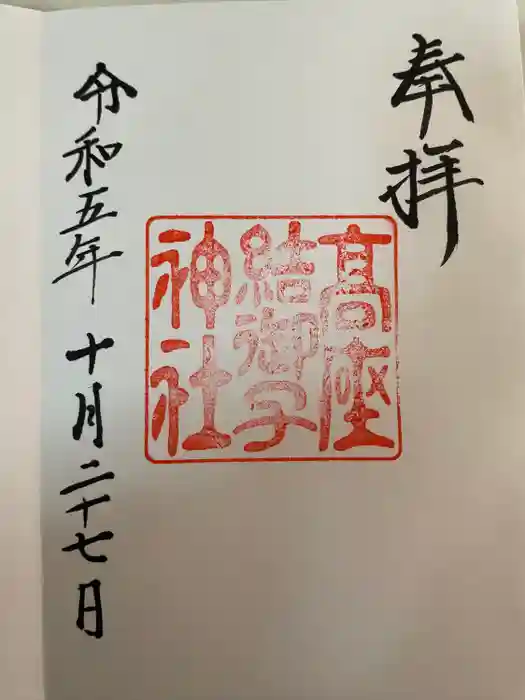 奉拝
髙座
結御子
神社
令和五年十月二十七日